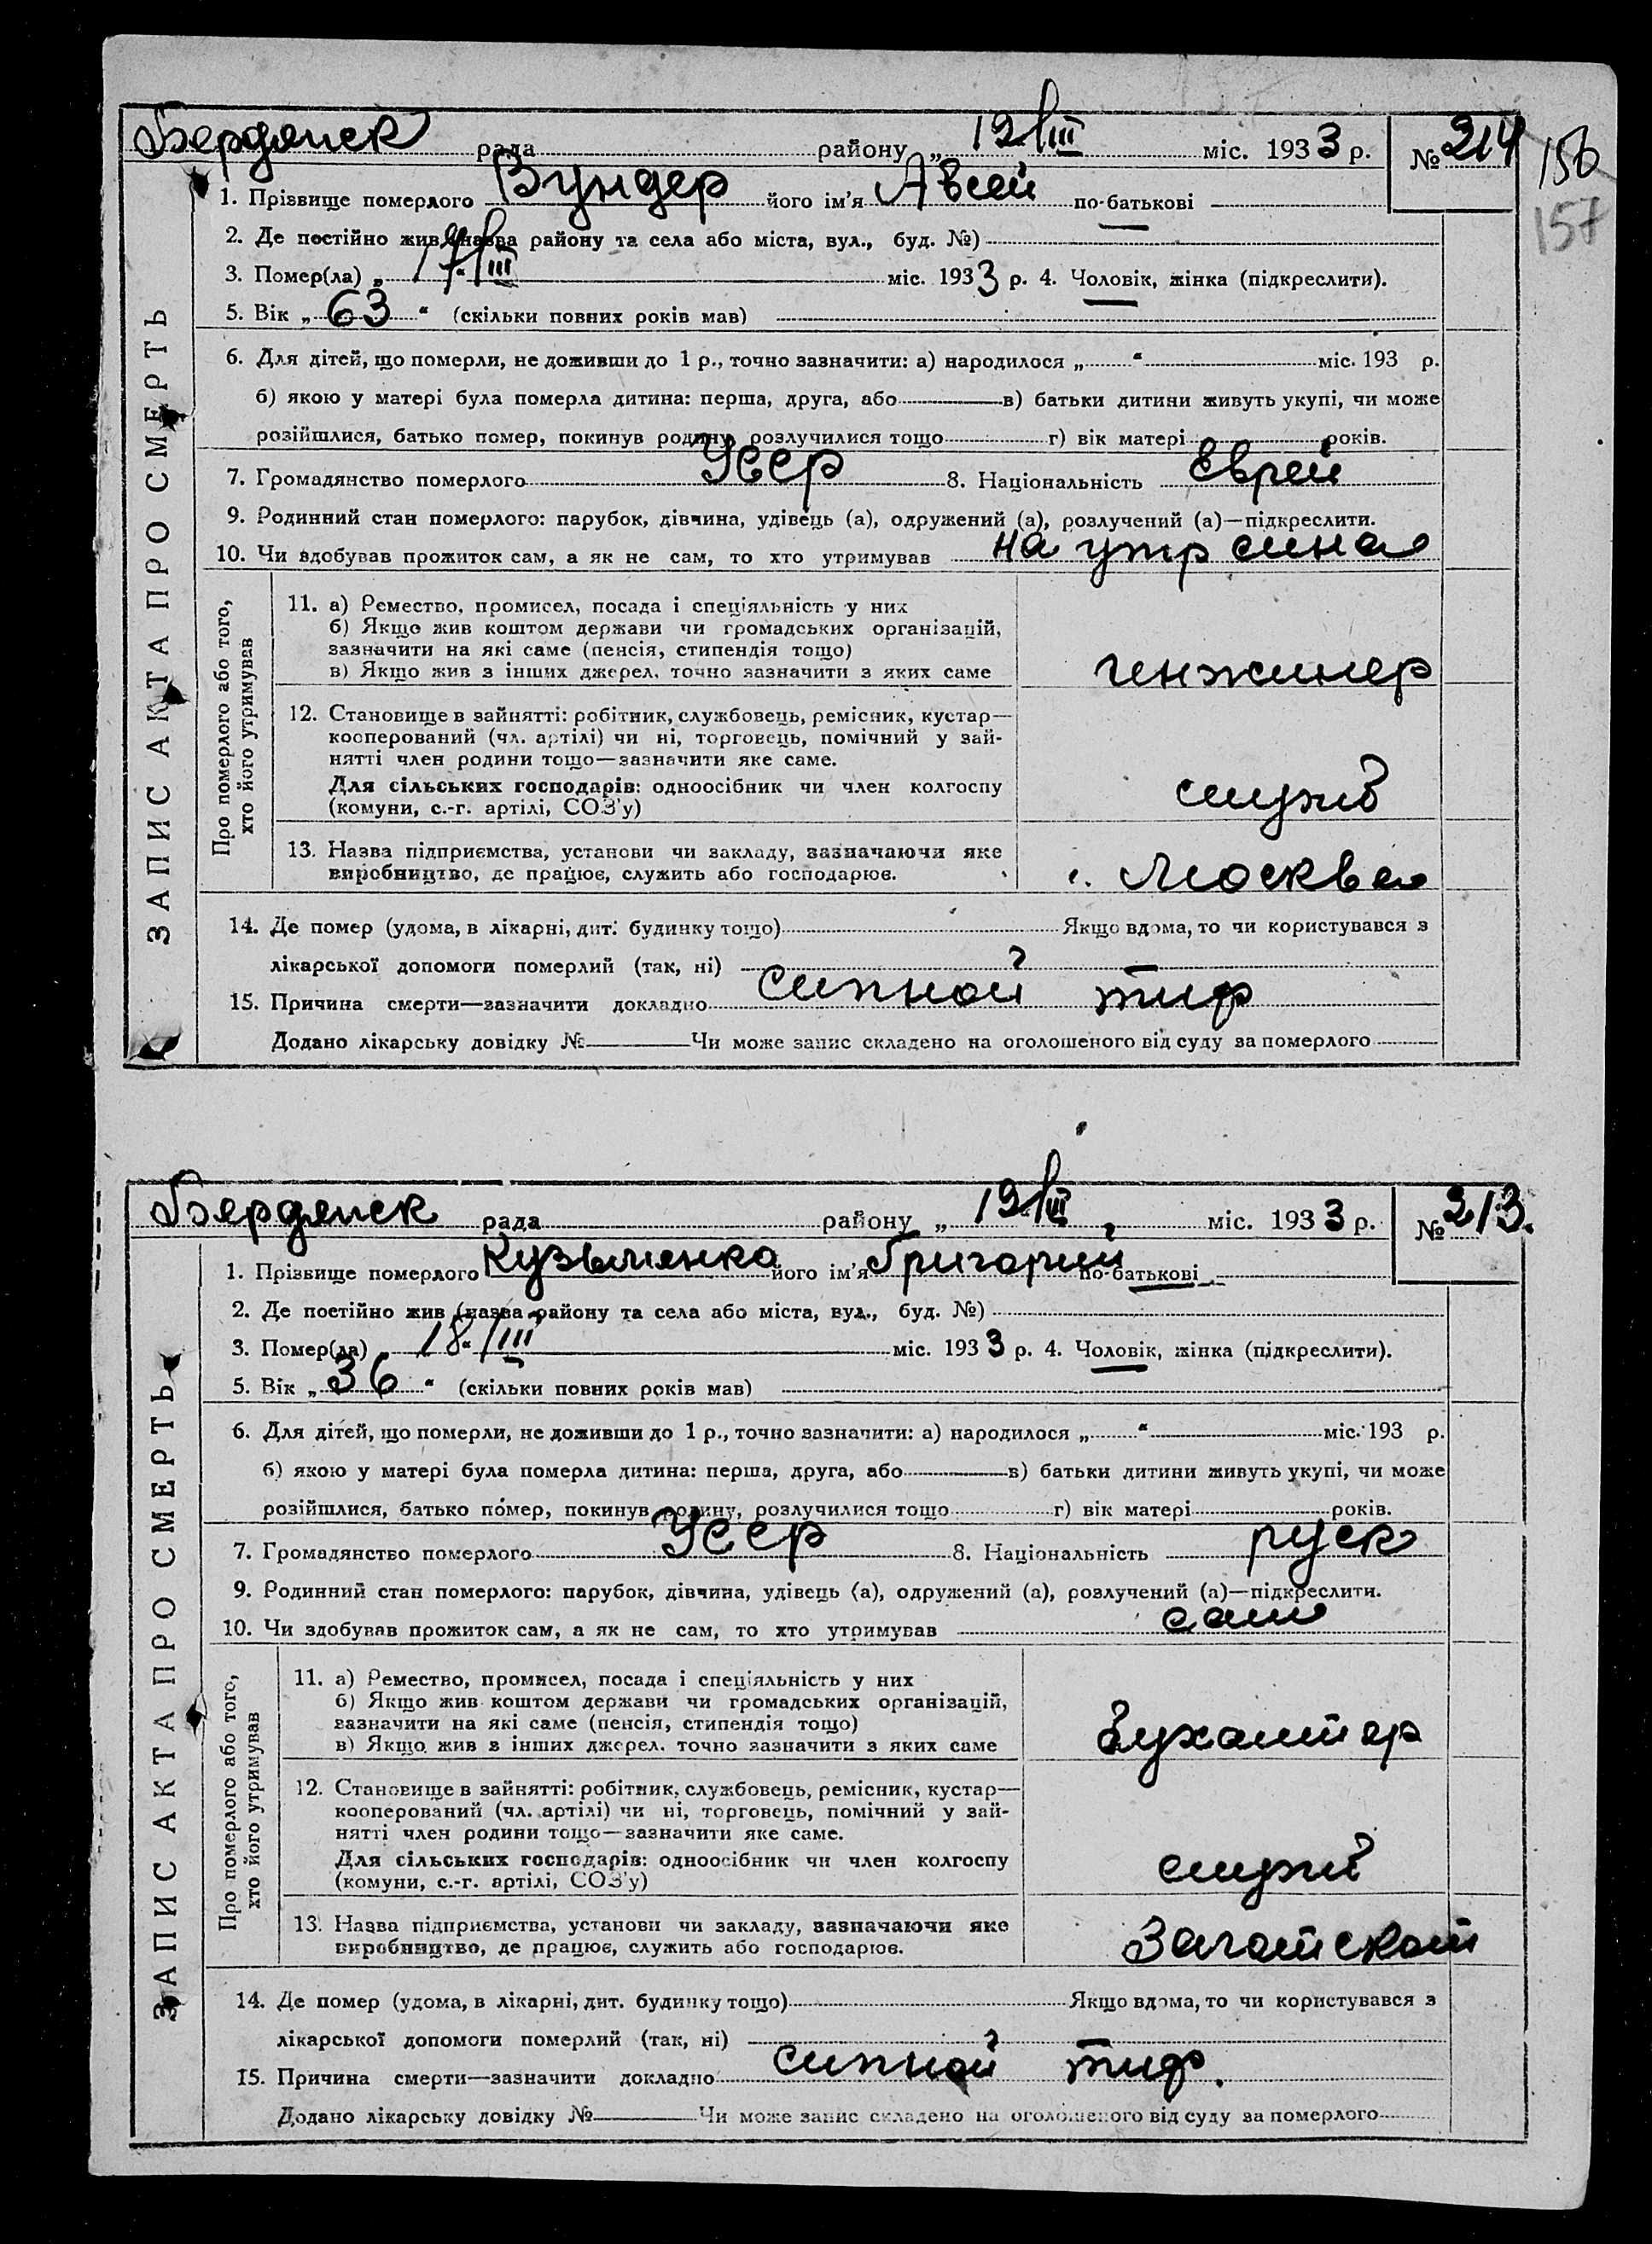 Бердянск рада району „ 19/III міс. 1933 р. № 214
156
157
1. Прізвище померлого Вундер його ім'я Авсей по-батькові
2. Де постійно жив (назва району та села або міста, вул., буд. №)
3. Помер(ла) „ 17/III міс. 1933 р. 4. Чоловік, жінка (підкреслити).
5. Вік „ 63 “ (скільки повних років мав)
6. Для дітей, що померли, не доживши до 1 р., точно зазначити: а) народилося „ “ міс. 193 р.
б) якою у матері була померла дитина: перша, друга, або в) батьки дитини живуть укупі, чи може
розійшлися, батько помер, покинув родину, розлучилися тощо г) вік матері років.
7. Громадянство померлого Усср 8. Національність Еврей
9. Родинний стан померлого: парубок, дівчина, удівець (а), одружений (а), розлучений (а)—підкреслити.
10. Чи здобував прожиток сам, а як не сам, то хто утримував на утр сина
ЗАПИС АКТА ПРО СМЕРТЬ
Про померлого або того,
хто його утримував
11. а) Ремество, промисел, посада і спеціяльність у них
б) Якщо жив коштом держави чи громадських організацій,
зазначити на які саме (пенсія, стипендія тощо)
в) Якщо жив з інших джерел, точно зазначити з яких саме
инжинер
12. Становище в зайнятті: робітник, службовець, ремісник, кустар—
кооперований (чл. артілі) чи ні, торговець, помічний у зай-
нятті член родини тощо—зазначити яке саме.
Для сільських господарів: одноосібник чи член колгоспу
(комуни, с.-г. артілі, СОЗ'у)
служб
13. Назва підприємства, установи чи закладу, зазначаючи яке
виробництво, де працює, служить або господарює.
г. Москва
14. Де помер (удома, в лікарні, дит. будинку тощо) Якщо вдома, то чи користувався з
лікарської допомоги померлий (так, ні)
15. Причина смерти—зазначити докладно Сипной тиф
Додано лікарську довідку № Чи може запис складено на оголошеного від суду за померлого
Бердянск рада району „ 19/III міс. 1933 р. № 213.
1. Прізвище померлого Кузьменко його ім'я Григорий по-батькові
2. Де постійно жив (назва району та села або міста, вул., буд. №)
3. Помер(ла) „ 18/III міс. 1933 р. 4. Чоловік, жінка (підкреслити).
5. Вік „ 36 “ (скільки повних років мав)
6. Для дітей, що померли, не доживши до 1 р., точно зазначити: а) народилося „ “ міс. 193 р.
б) якою у матері була померла дитина: перша, друга, або в) батьки дитини живуть укупі, чи може
розійшлися, батько помер, покинув родину, розлучилися тощо г) вік матері років.
7. Громадянство померлого Усср 8. Національність руск
9. Родинний стан померлого: парубок, дівчина, удівець (а), одружений (а), розлучений (а)—підкреслити.
10. Чи здобував прожиток сам, а як не сам, то хто утримував сам
ЗАПИС АКТА ПРО СМЕРТЬ
Про померлого або того,
хто його утримував
11. а) Ремество, промисел, посада і спеціяльність у них
б) Якщо жив коштом держави чи громадських організацій,
зазначити на які саме (пенсія, стипендія тощо)
в) Якщо жив з інших джерел, точно зазначити з яких саме
Бухалтер
12. Становище в зайнятті: робітник, службовець, ремісник, кустар—
кооперований (чл. артілі) чи ні, торговець, помічний у зай-
нятті член родини тощо—зазначити яке саме.
Для сільських господарів: одноосібник чи член колгоспу
(комуни, с.-г. артілі, СОЗ'у)
служб
13. Назва підприємства, установи чи закладу, зазначаючи яке
виробництво, де працює, служить або господарює.
Заготскот
14. Де помер (удома, в лікарні, дит. будинку тощо) Якщо вдома, то чи користувався з
лікарської допомоги померлий (так, ні)
15. Причина смерти—зазначити докладно Сипной тиф.
Додано лікарську довідку № Чи може запис складено на оголошеного від суду за померлого